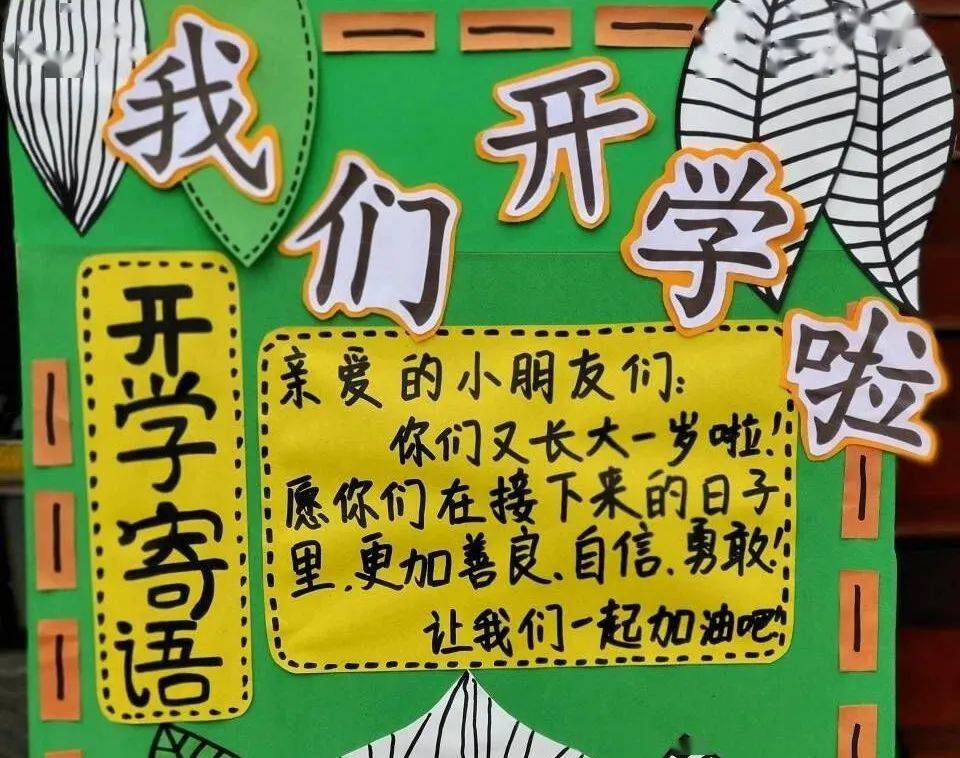 我们开学啦
开学寄语
亲爱的小朋友们:
你们又长大一岁啦!
愿你们在接下来的日子
里、更加善良、自信、勇敢!
让我们一起加油吧!